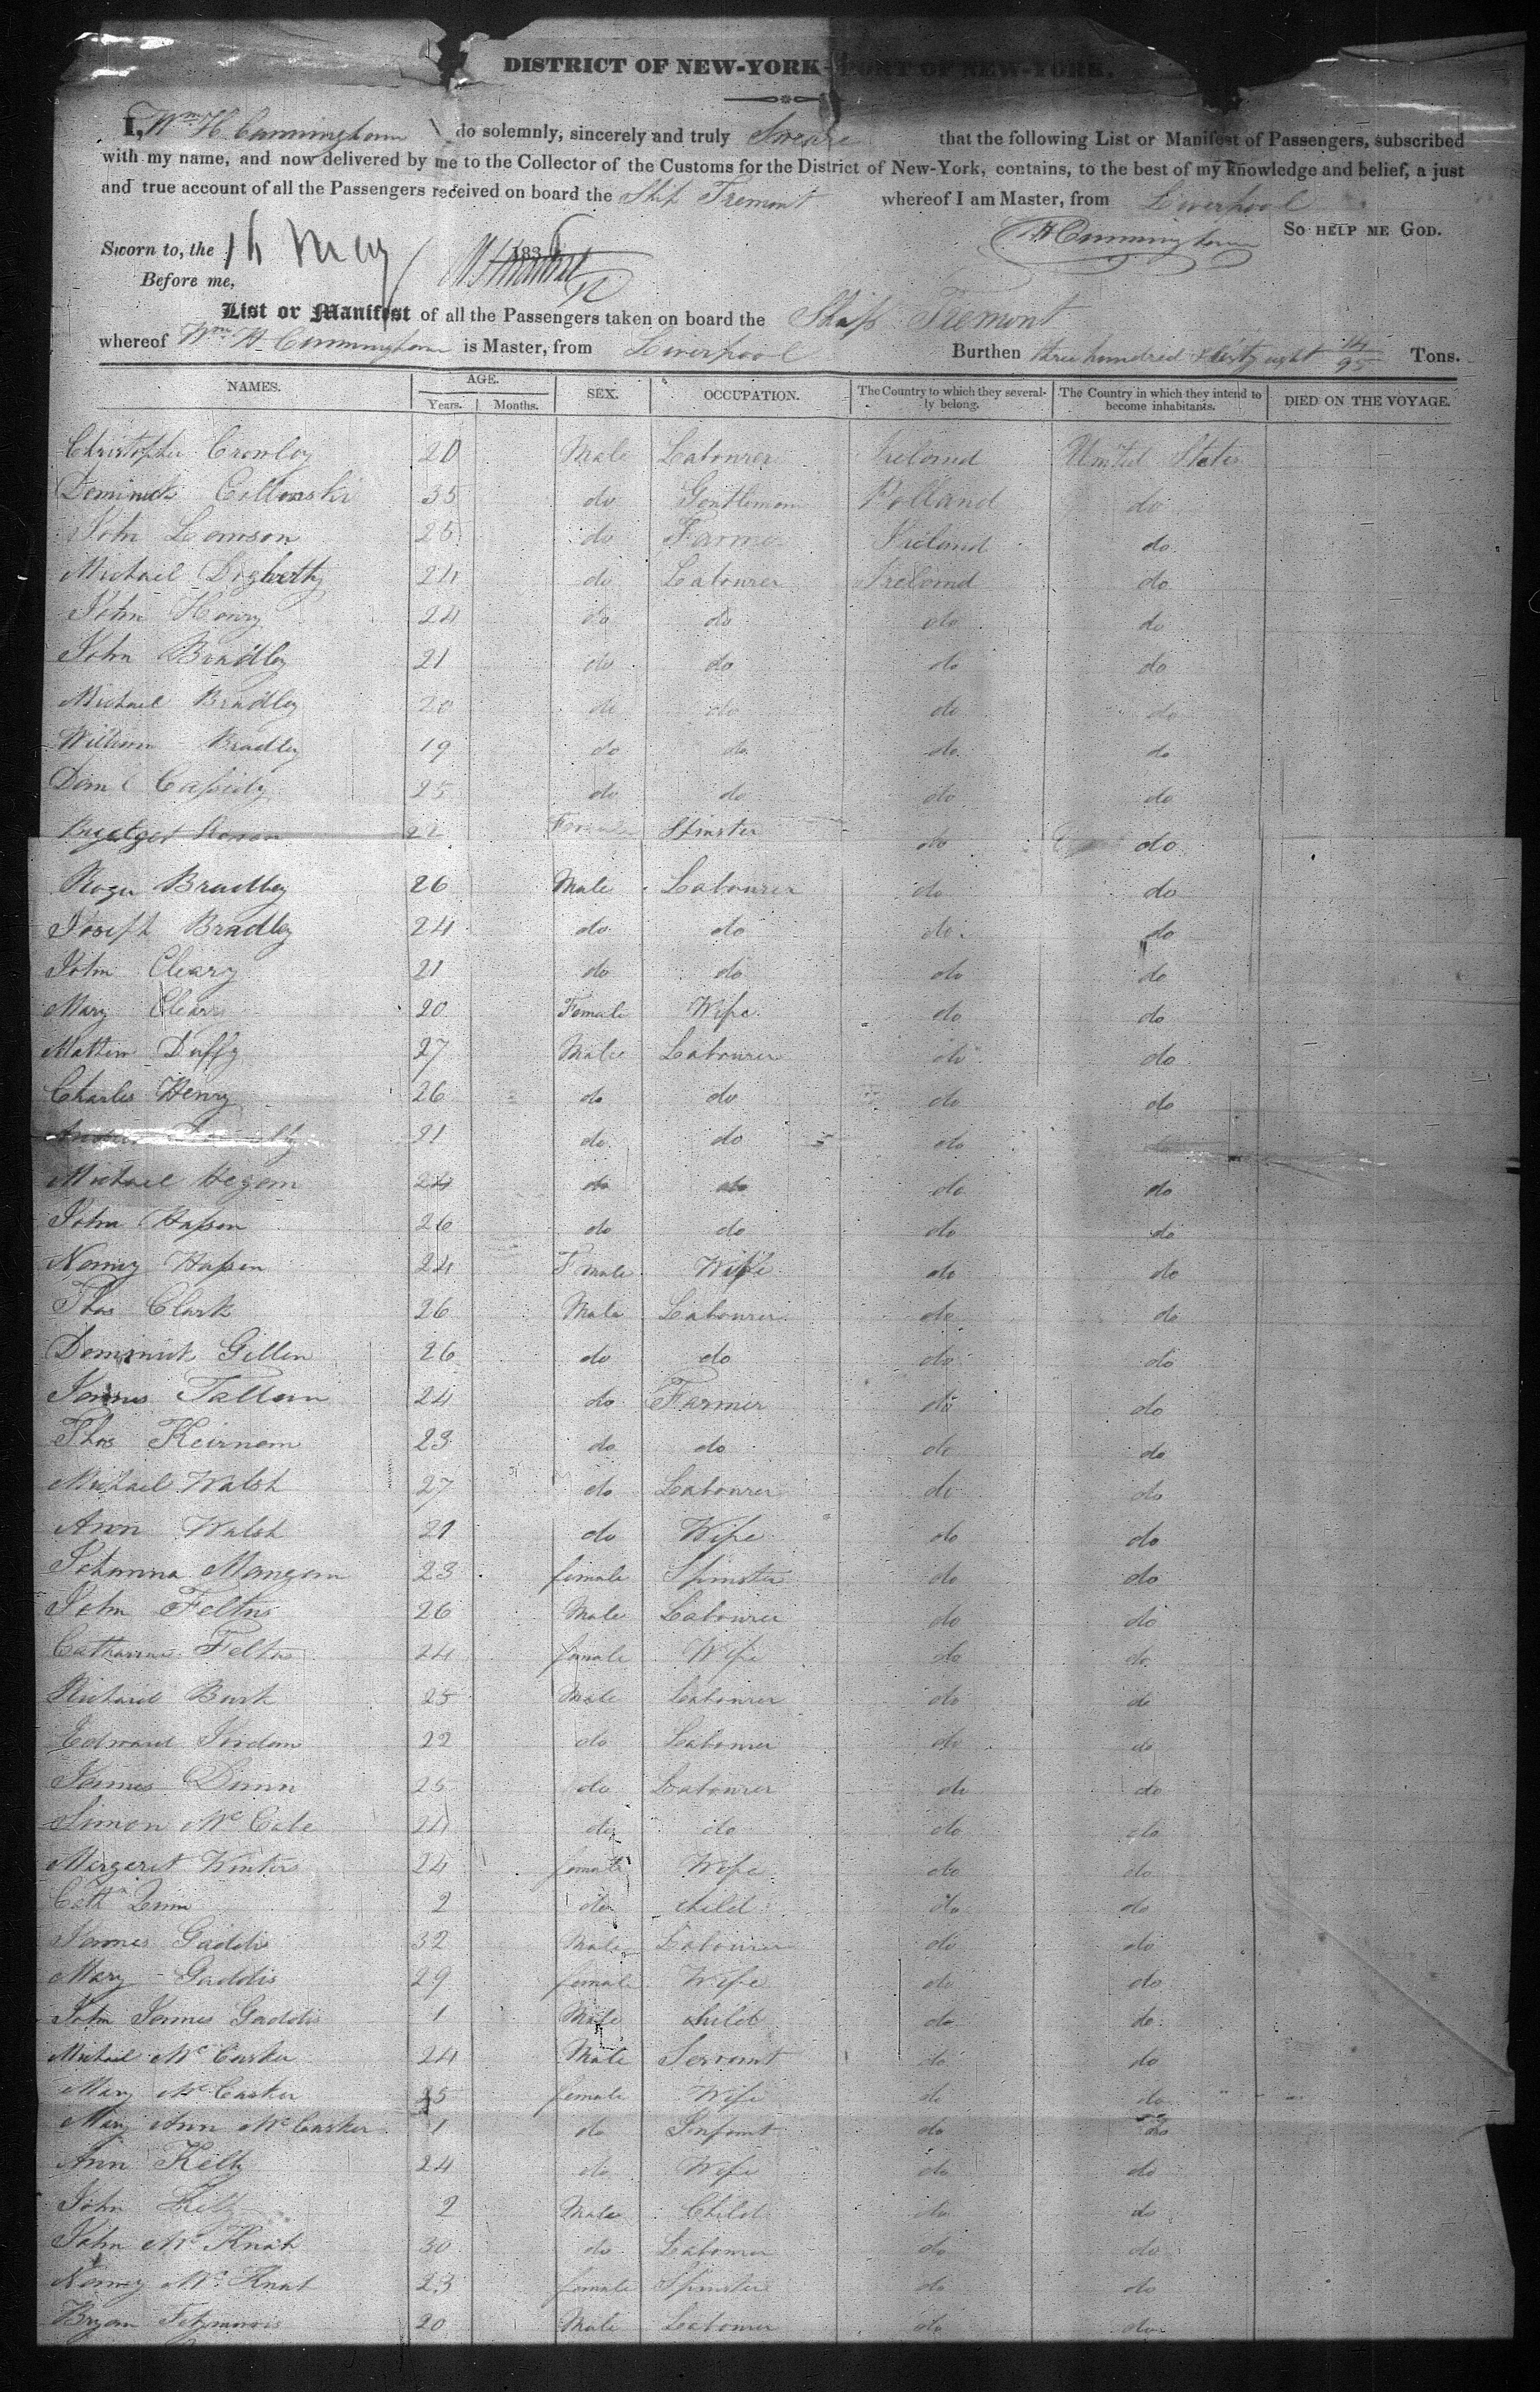 DISTRICT OF NEW-YORK-PORT OF NEW-YORK.
I, Wm H. Cunningham do solemnly, sincerely and truly Sweare that the following List or Manifest of Passengers, subscribed
with my name, and now delivered by me to the Collector of the Customs for the District of New-York, contains, to the best of my knowledge and belief, a just
and true account of all the Passengers received on board the Ship Tremont whereof I am Master, from Liverpool
So help me God.
W H Cunningham
Sworn to, the 16 May 1836
Before me,
List or Manifest of all the Passengers taken on board the Ship Tremont
whereof Wm H Cunningham is Master, from Liverpool Burthen three hundred & thirty eight 14/95 Tons.
NAMES. AGE. Years. Months. SEX. OCCUPATION. The Country to which they severally belong. The Country in which they intend to become inhabitants. DIED ON THE VOYAGE.
Christopher Crowley 20 Male Labourer Ireland United States
Dominick 35 do Gentleman Polland do
John Lawson 25 do Farmer Ireland do
Michael 24 do Labourer Ireland do
John Henry 24 do do do do
John Bradley 21 do do do do
Michael Bradley 20 do do do do
William Bradley 19 do do do do
Danl Cassidy 25 do do do do
22 Female Spinster do do
Roger Bradley 26 Male Labourer do do
Joseph Bradley 24 do do do do
John Cleary 21 do do do do
Mary Cleary 20 Female Wife do do
Mathew Duffy 27 Male Labourer do do
Charles Henry 26 do do do do
21 do do do
Michael Hegan 24 do do do do
John Hasson 26 do do do do
Nancy Hasson 24 Female Wife do do
Thos Clark 26 Male Labourer do do
Dominick Gillen 26 do do do do
James Tallan 24 do Farmer do do
Thos Keirnan 23 do do do do
Michael Walsh 27 do Labourer do do
Ann Walsh 21 do Wife do do
Johanna Mangan 23 female Spinster do do
John Feltus 26 Male Labourer do do
Catharine Feltus 24 female Wife do do
Richard Burk 25 Male Labourer do do
Edward Jordan 22 do Labourer do do
James Dunn 25 do Labourer do do
Simon McCabe 24 do do do do
Margaret Winters 24 female Wife do do
Cath Quin 2 do child do do
James Gaddis 32 Male Labourer do do
Mary Gaddis 29 female Wife do do
John James Gaddis 1 Male child do do
Michael McCasker 24 Male Servant do do
Mary McCasker 25 female Wife do do
Mary Ann McCasker 1 do Infant do do
Ann Kelly 24 do Wife do do
John Kelly 2 Male Child do do
John McKnat 30 do Labourer do do
Nancy McKnat 23 female Spinster do do
Bryan Fitzmorris 20 Male Labourer do do